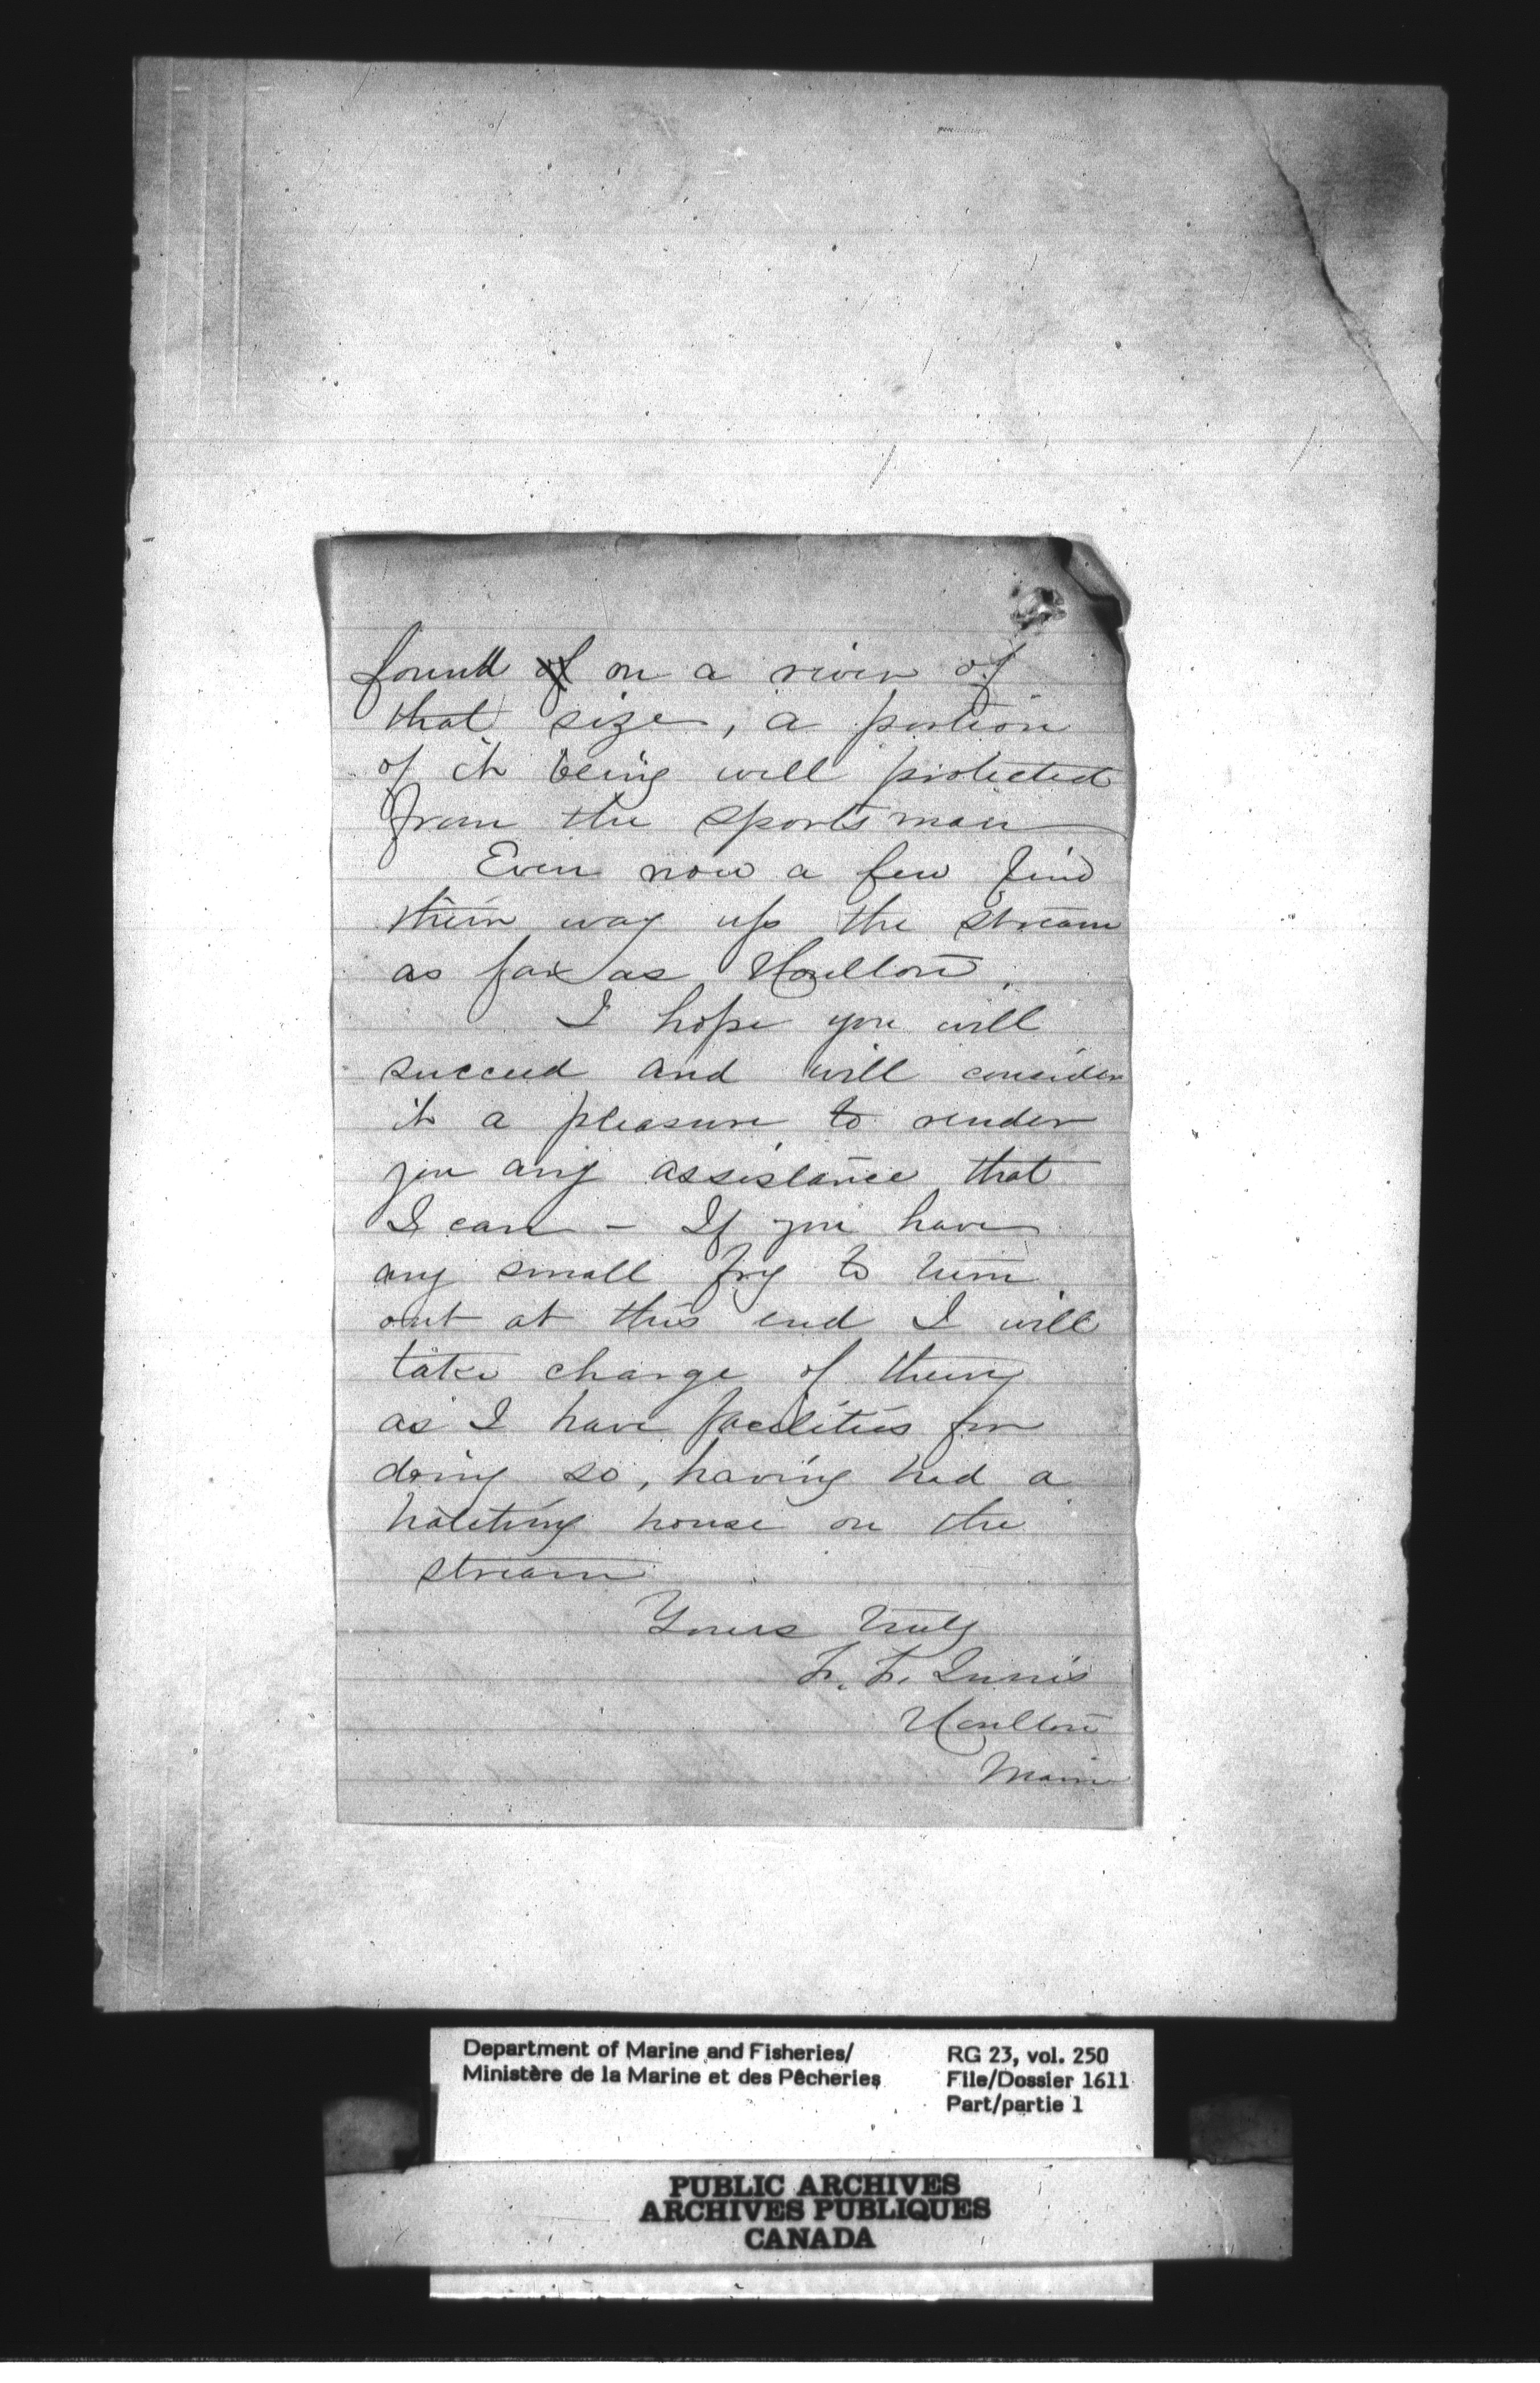 found on a river of
that size, a portion
of it being well protected
from the sportsman
Even now a few find
their way up the stream
as far as Houlton.
I hope you will
succeed and will consider
it a pleasure to render
you any assistance that
I can - If you have
any small fry to turn
out at this end I will
take charge of them
as I have facilities for
doing so, having had a
hatching house on the
stream
Yours truly
F. F. Innis
Houlton
Maine
Department of Marine and Fisheries/
Ministère de la Marine et des Pêcheries
RG 23, vol. 250
File/Dossier 1611
Part/partie 1
PUBLIC ARCHIVES
ARCHIVES PUBLIQUES
CANADA